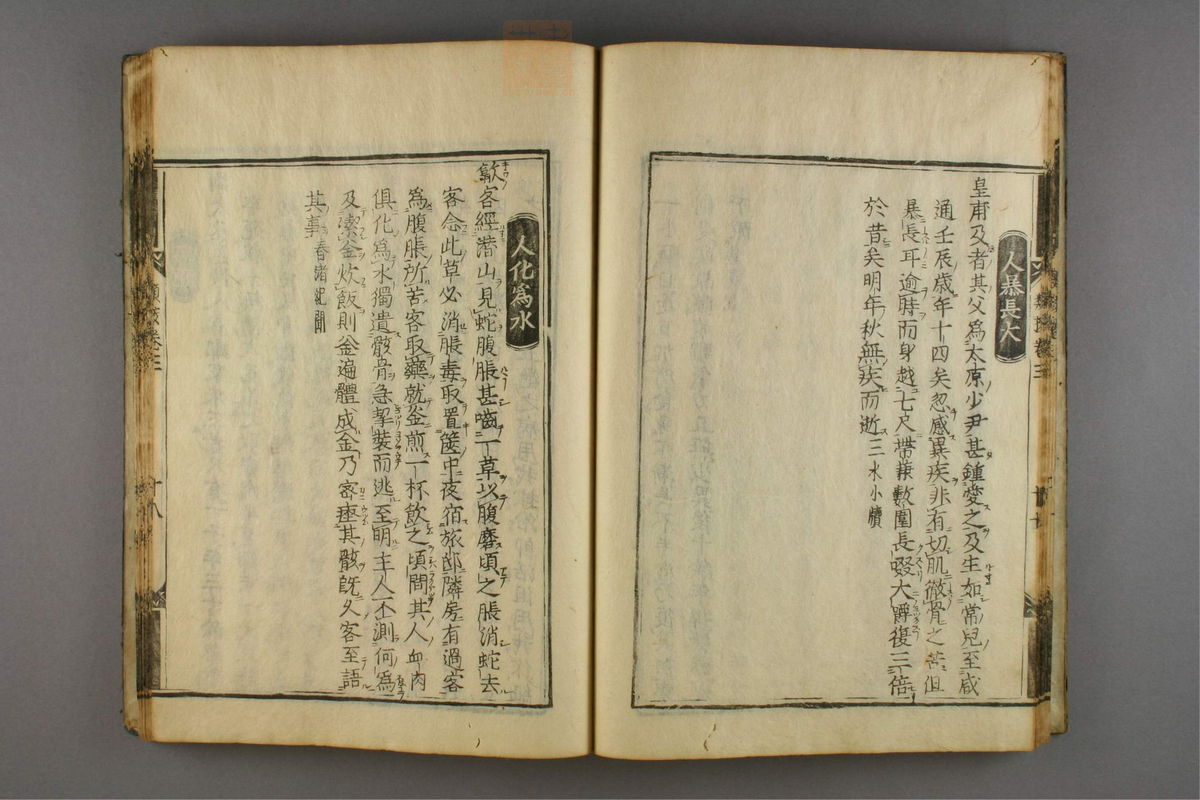 人暴長大
皇甫及者其父為太原少尹甚鍾愛之及生如常兒至咸
通壬辰歲年十四矣忽感異疾非有切肌徹骨之苦但
暴長耳逾時而身越七尺帶兼數圍長啜大嚼復三倍
於昔矣明年秋無疾而逝三水小牘
人化為水
歙客經潜山見蛇腹脹甚嚙一草以腹磨頃之脹消蛇去
客念此草必消脹毒取置篋中夜宿旅邸隣房有過客
為腹脹所苦客取藥就釜煎一杯飲之頃間其人血肉
俱化為水獨遺骸骨急挈裝而逃至明主人不測何為
及潔釜炊飯則釜遍體成金乃密瘞其骸既久客至語
其事春渚紀聞
卷三
十八